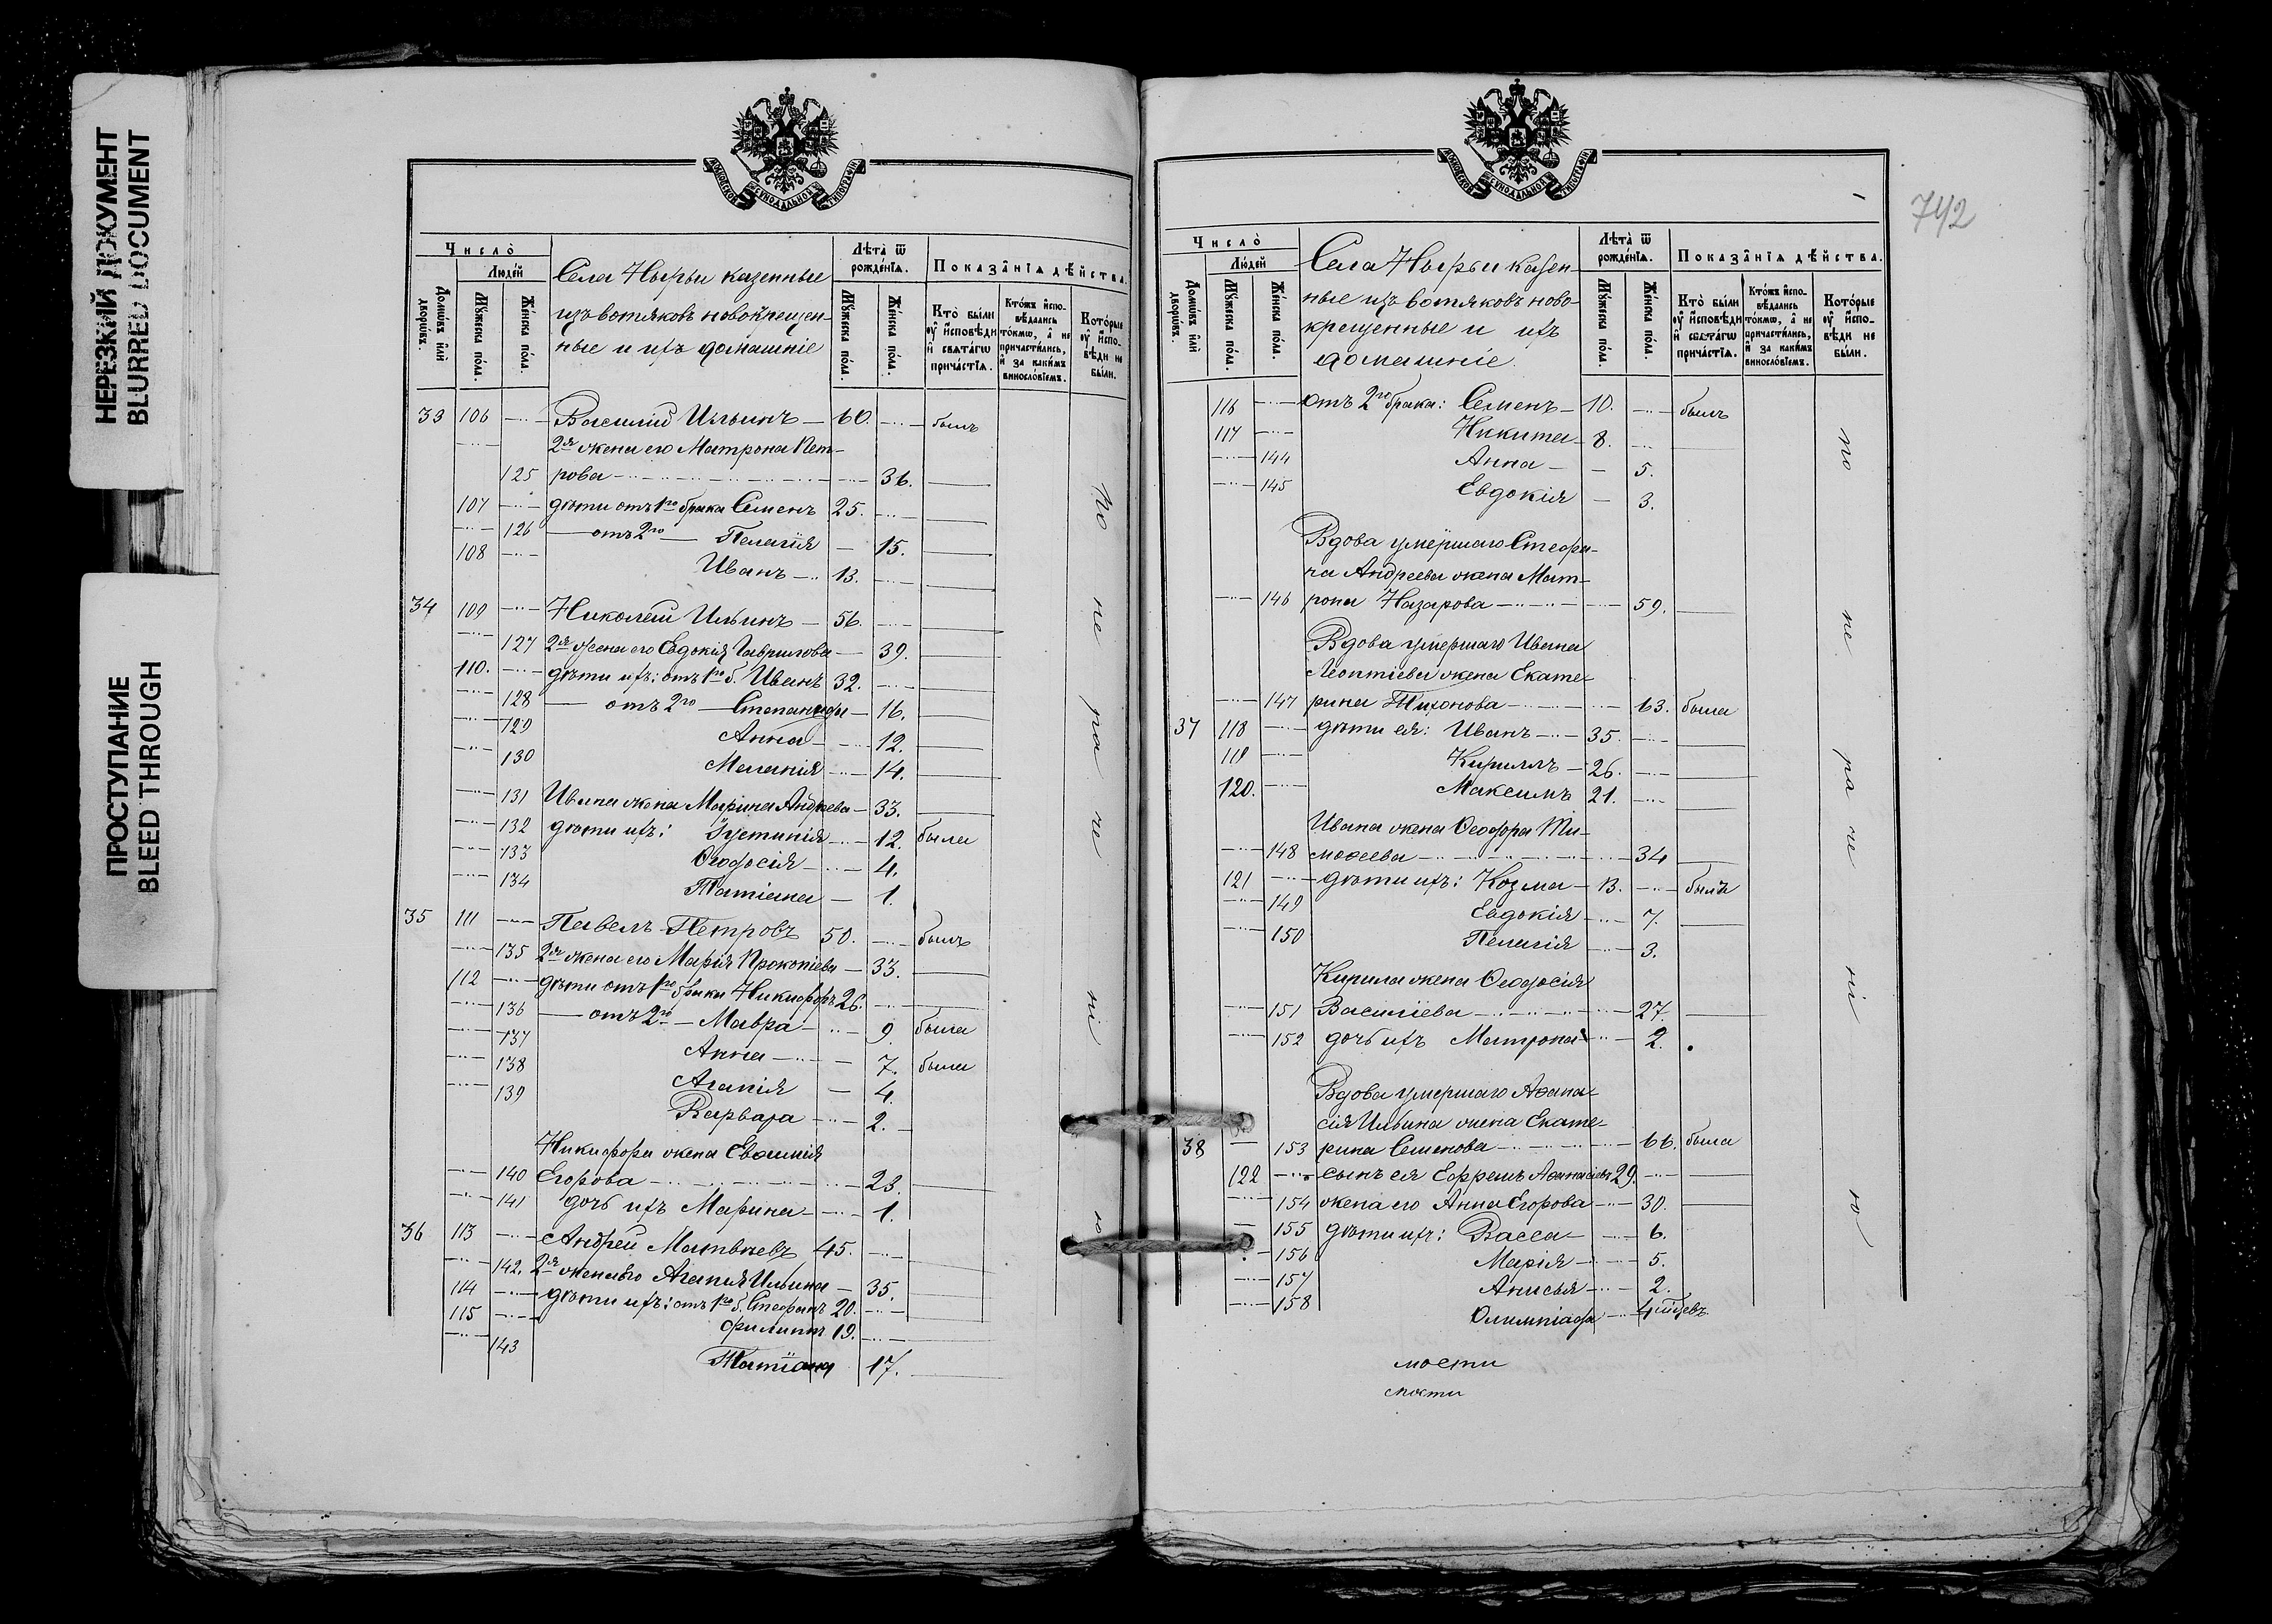 НЕРЕЗКИЙ ДОКУМЕНТ
BLURRED DOCUMENT
ПРОСТУПАНИЕ
BLEED THROUGH
МОСКОВСКОЙ СѴНОДАЛЬНОЙ ТИПОГРАФІИ
Число̀
Люде́й
Домѡ́въ и҆лѝ дворѡ́въ.
Мꙋ́жеска по́ла.
Же́нска по́ла.
Села Нырьи казенные
изъ вотяковъ новокрещен-
ные и ихъ домашніе
Лѣта̀ ѿ рожде́нїѧ.
Мꙋ́жеска по́ла.
Же́нска по́ла.
Показа̑нїѧ дѣ́йства.
Кто̀ бы́ли оу҆ и҆сповѣ́ди и҆ свѧта́гѡ прича́стїѧ.
Кто́жъ и҆спо-вѣ́дались то́кмѡ, а҆ не причасти́лись, и҆ за каки́мъ винosло́вїемъ.
Кото́рые оу҆ и҆спо-вѣ́ди не бы́ли.
33 106 Василий Ильинъ 60. былъ
2я жена его Матрона Пет-
125 рова 36.
107 дѣти отъ 1го брака Семенъ 25.
126 отъ 2го Пелагія 15.
108 Иванъ 13.
34 109 Николай Ильинъ 56.
127 2я жена его Евдокія Гаврилова 39.
110. дѣти ихъ: отъ 1го б. Иванъ 32.
128 отъ 2го Степанида 16.
129 Анна 12.
130 Меланія 14.
131 Ивана жена Марина Андреева 33.
132 дѣти ихъ: Іустинія 12. была
133 Ѳеодосія 4.
134 Татіана 1.
35 111 Павелъ Петровъ 50. былъ
135 2я жена его Марія Прокопіева 33.
112 дѣти отъ 1го брака Никифоръ 26.
136 отъ 2го Мавра 9. была
137 Анна 7. была
138 Агапія 4.
139 Варвара 2.
Никифора жена Евѳимія
140 Егорова 23.
141 дочь ихъ Марина 1.
36 113 Андрей Матвѣевъ 45.
142. 2я жена его Агапія Ильина 35.
114 дѣти ихъ: отъ 1го б. Стефанъ 20.
115 Филиппъ 19.
143 Татіана 17.
по не ра че ні ю
742
МОСКОВСКОЙ СѴНОДАЛЬНОЙ ТИПОГРАФІИ
Число̀
Люде́й
Домѡ́въ и҆лѝ дворѡ́въ.
Мꙋ́жеска по́ла.
Же́нска по́ла.
Села Нырьи казен-
ные изъ вотяковъ ново-
крещенные и ихъ
домашніе.
Лѣта̀ ѿ рожде́нїѧ.
Мꙋ́жеска по́ла.
Же́нска по́ла.
Показа̑нїѧ дѣ́йства.
Кто̀ бы́ли оу҆ и҆сповѣ́ди и҆ свѧта́гѡ прича́стїѧ.
Кто́жъ и҆спо-вѣ́дались то́кмѡ, а҆ не причасти́лись, и҆ за каки́мъ винosло́вїемъ.
Кото́рые оу҆ и҆спо-вѣ́ди не бы́ли.
116 отъ 2го брака: Семенъ 10. былъ
117 Никита 8.
144 Анна 5.
145 Евдокія 3.
Вдова умершаго Стефа-
на Андреева жена Мат-
146 рона Назарова 59.
Вдова умершаго Ивана
Леонтіева жена Екате-
147 рина Тихонова 63. была
37 118 дѣти ея: Иванъ 35.
119 Кириллъ 26.
120. Максимъ 21.
Ивана жена Ѳеодора Ти-
148 моѳеева 34
121 дѣти ихъ: Козма 13. былъ
149 Евдокія 7.
150 Пелагія 3.
Кирила жена Ѳеодосія
151 Василіева 27.
152 дочь ихъ Матрона 2.
Вдова умершаго Аѳана-
сія Ильина жена Екате-
38 153 рина Семенова 66. была
122 сынъ ея Ефремъ Аѳанасіевъ 29.
154 жена его Анна Егорова 30.
155 дѣти ихъ: Васса 6.
156 Марія 5.
157 Анисья 2.
158 Олимпіада 4 мцевъ
по не ра че ні ю
мости
мости